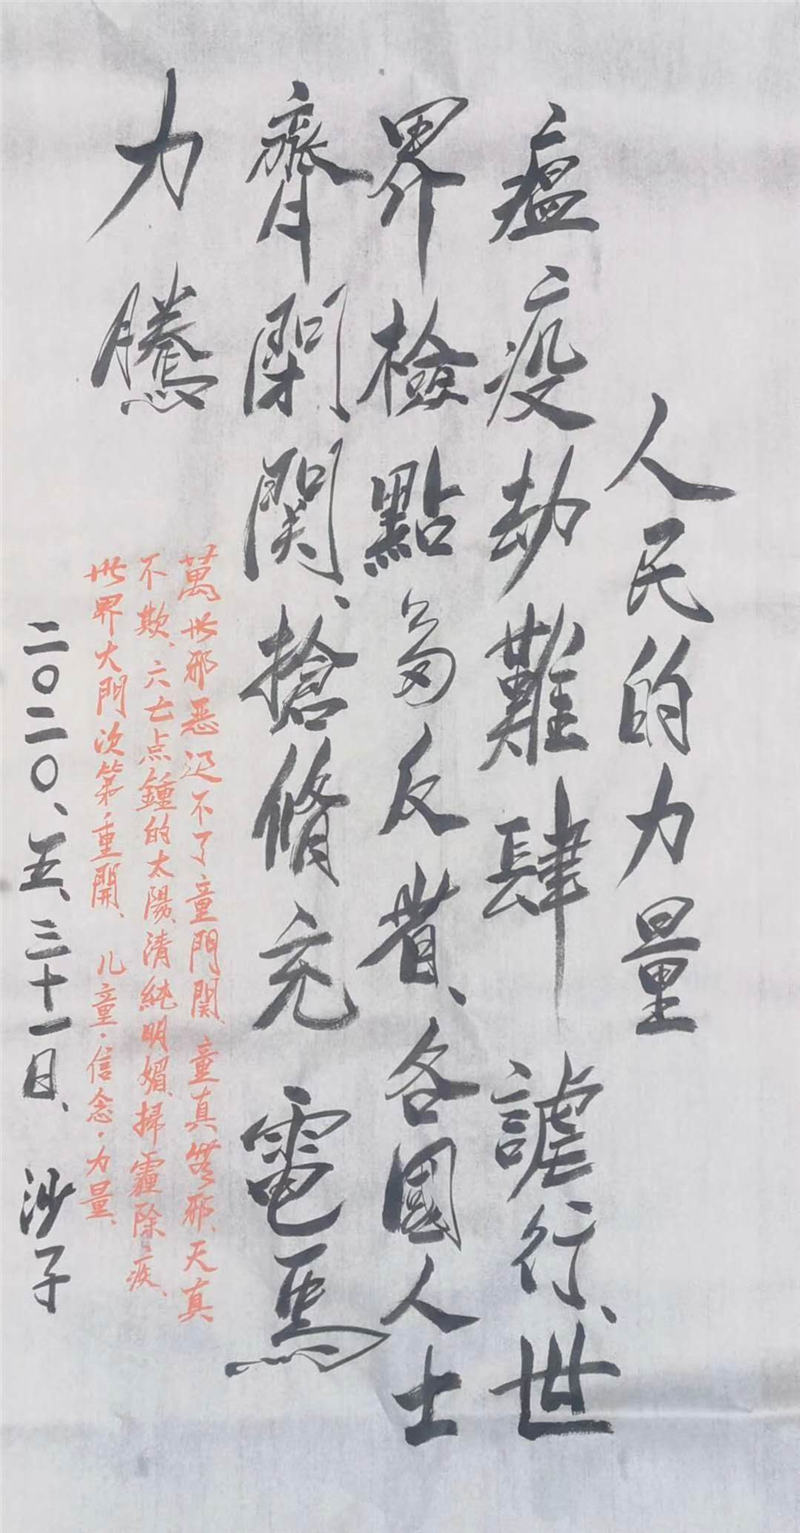 人民的力量
瘟疫劫難肆謔行、世
界檢點多反省、各國人士
齊閉關、搶脩充電馬
力騰
萬世邪惡過不了童門關、童真無邪、天真
不欺、六七点鍾的太陽、清純明媚、掃霾除疾、
世界大門次第重開、儿童·信念·力量、
二〇二〇、五、三十一日、沙子